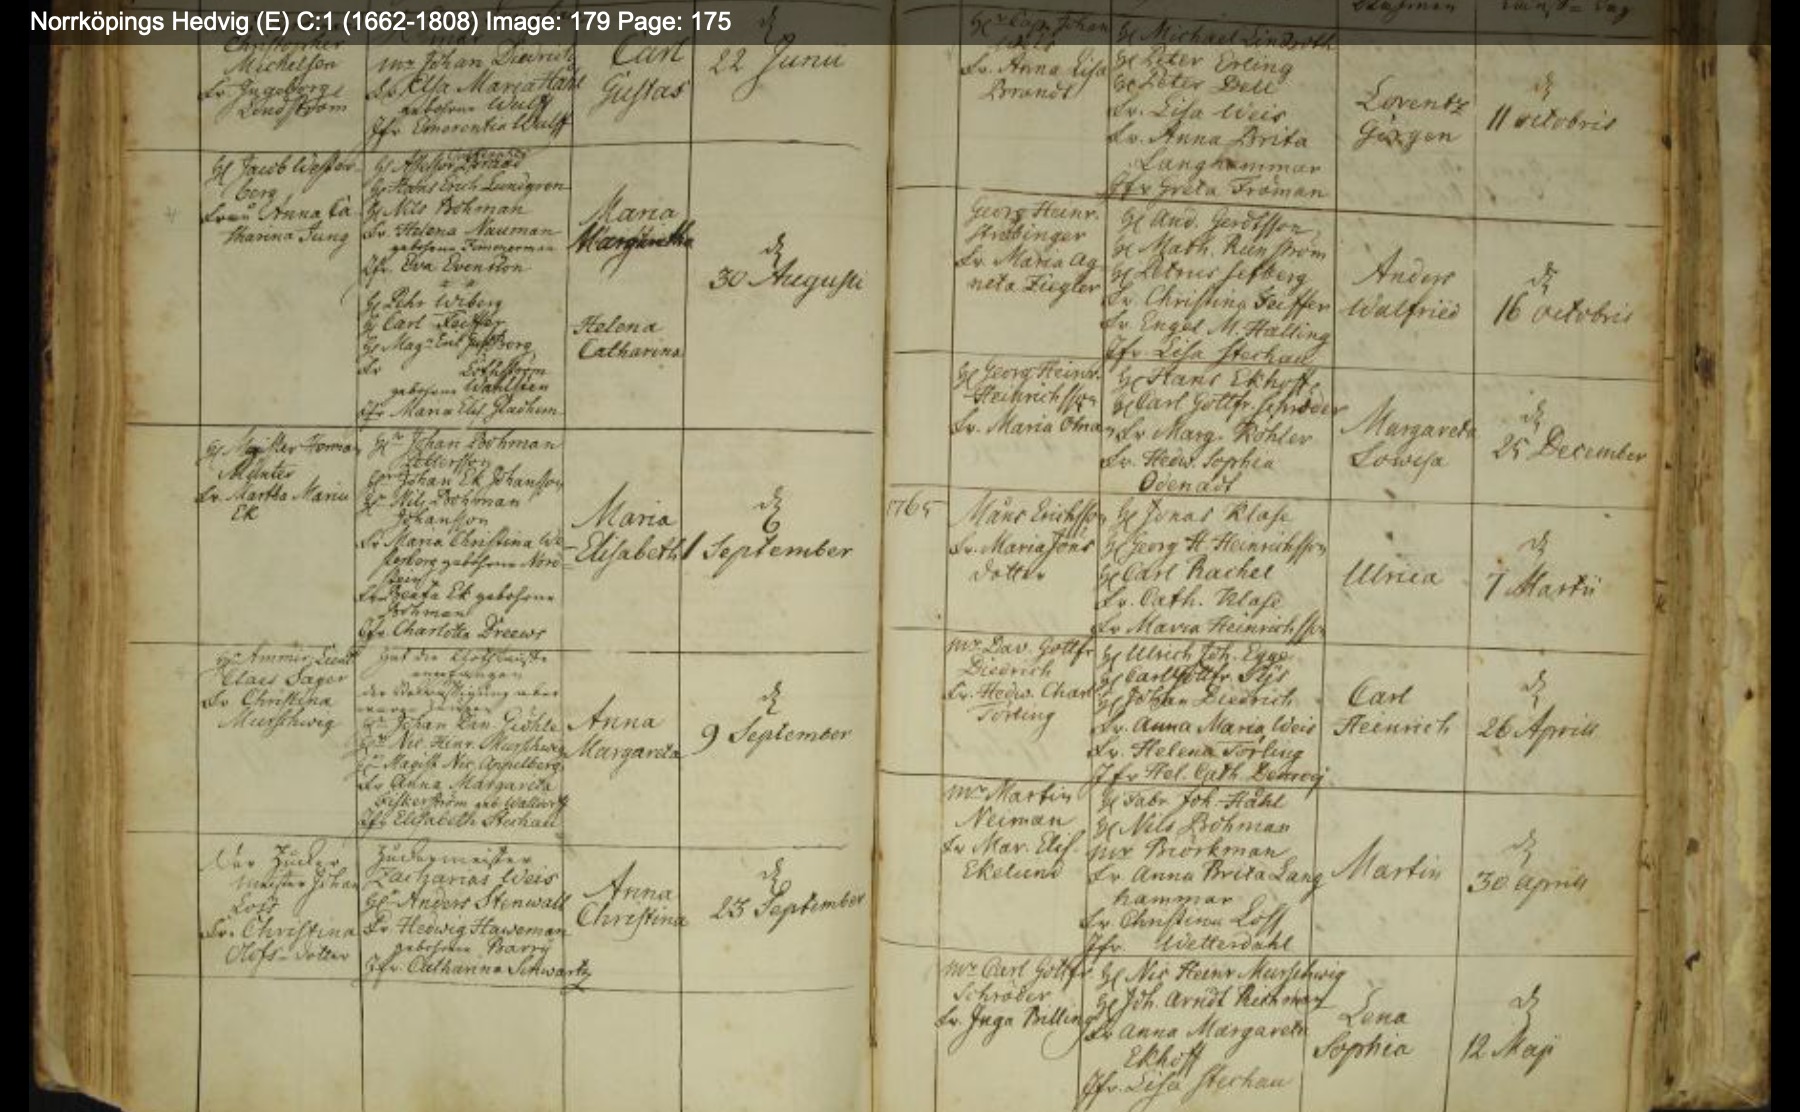 Norrköpings Hedvig (E) C:1 (1662-1808) Image: 179 Page: 175
Michelson
Fr. Ingeborg
Lindström
Mr Johan Diedrich
Fr Elsa Maria Hahl
gebohrne Wulff
Jfr Emerentia Wulff
Carl
Gustas
d
22 Junii
H Jacob Wester-
berg
Frau Anna Ca
tharina Jung
H Assessor
H Hans Erich Lundgren
H Nils Bohman
Fr. Helena Nauman
gebohrne Zimmerman
Jfr. Eva Evenson
H Pehr Wiberg
H Carl Feiffer
H Mag
Fr
gebohrne Wahlsten
Jfr Maria Elis Gladhem
Maria
Margaretha
Helena
Catharina
d
30 Augusti
H Meister Herman
Münter
Fr. Martha Maria
Ek
Hr Johan Bohman
Pettersson
Hr Johan Ek Johansson
Hr Nils Bohman
Johansson
Fr Maria Christina We
gebohrne Nord
Fr Beata Ek gebohrne
Bohman
Jfr Charlotta Dreews
Maria
Elisabeth
d
6
1 September
Lieut
Claes Sager
Fr Christina
Murschwig
Hr Johan
Hr Nic. Heinr. Murschwig
Hr Magist Nic. Appelberg
Fr Anna Margareta
Jfr Elisabeth Stechau
Anna
Margareta
d
9 September
Der Zucker
meister Johan
Loss
Fr. Christina
Olofs-dotter
Zuckermeister
Zacharias Weis
Hr Anders Stenwall
Fr Hedwig Haweman
gebohrne Barry
Jfr. Catharina Schwartz
Anna
Christina
d
23 September
Johan
Weis
Fr. Anna Lisa
Brandt
H Michael Lindroth
H Peter Erling
H Peter Bell
Fr. Lisa Weis
Fr. Anna Brita
Langhammar
Jfr Greta Froman
Lorentz
Görgen
d
11 octobris
Georg Heinr.
Strubinger
Fr. Maria Ag
neta Ziegler
H And. Gerdtsson
H Math. Renström
H Petrus Sefberg
Fr. Christina Feiffer
Fr. Engel M. Halling
Jfr Lisa Stechau
Anders
Walfried
d
16 octobris
H Georg Heinr.
Heinrichsson
Fr. Maria Oman
H Hans Ekhoff
H Carl Gottfr. Schröder
Fr Marg. Köhler
Fr. Hedw. Sophia
Odenadt
Margareta
Lowisa
d
25 December
1765
Måns Erichsson
Fr. Maria Jöns
dotter
H Jonas Klase
H Georg H. Heinrichsson
H Carl Rachel
Fr. Cath. Klase
Fr Maria Heinrichsson
Ulrica
d
7 Martii
Mr Dav. Gottfr
Diedrich
Fr. Hedw. Charl
Törling
H Ulrich Joh. Egge
H Carl Gottfr.
H Johan Diedrich
Fr. Anna Maria Weis
Fr. Helena Törling
Jfr Hel. Cath.
Carl
Heinrich
d
26 Aprill
Mr Martin
Neiman
Fr Mar. Elis.
Ekelund
H Fabr Joh. Hahl
H Nils Bohman
Mr Biörkman
Fr. Anna Brita Lang
hammar
Fr. Christina Loss
Jfr. Wetterdahl
Martin
d
30 aprill
Mr Carl Gottfr
Schröder
Fr. Inga Billing
H Nic Heinr Murschwig
H Joh. Arndt
Fr Anna Margareta
Ekhoff
Jfr. Lisa Stechau
Lena
Sophia
d
12 Maji